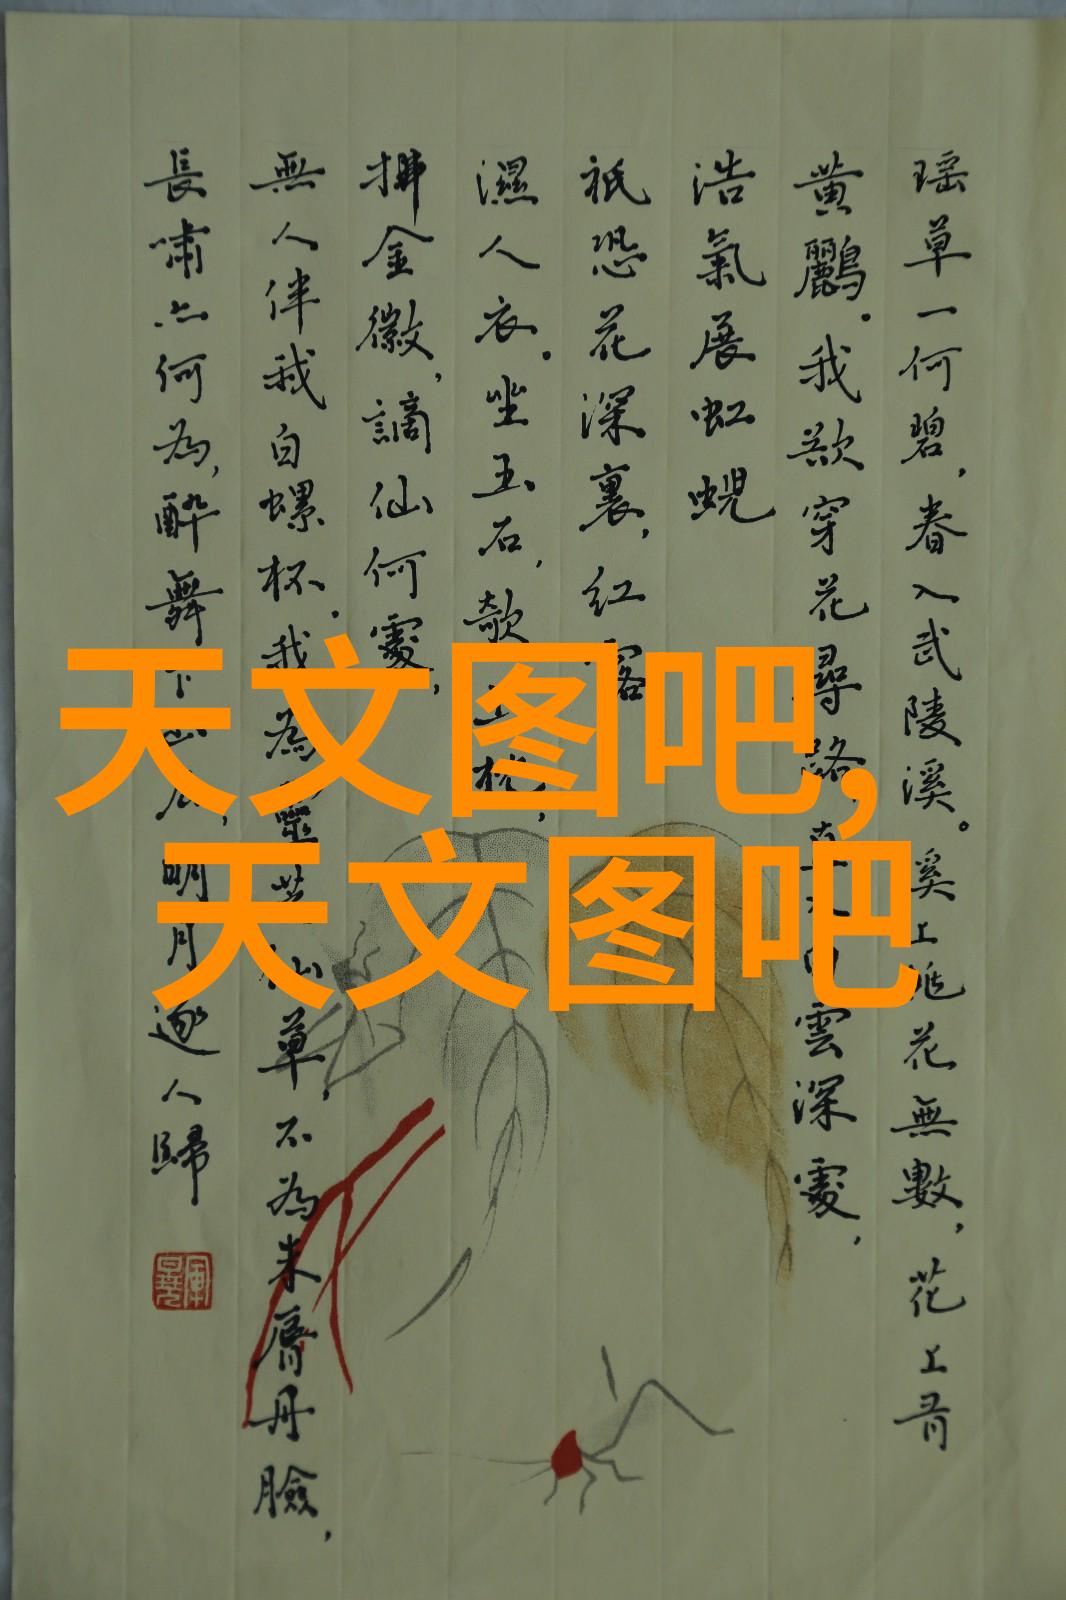 瑶草一何碧，春入武陵溪。溪上桃花無數，花上有
黄鸝。我欲穿花尋路，直入白雲深處，
浩氣展虹蜺
祇恐花深裏，紅露
濕人衣。坐玉石，欹玉枕，
拂金徽，謫仙何處，
無人伴我白螺杯。我為靈芝仙草，不為朱脣丹臉，
長嘯亦何為，醉舞下山去，明月逐人歸
天文图吧,
天文图吧